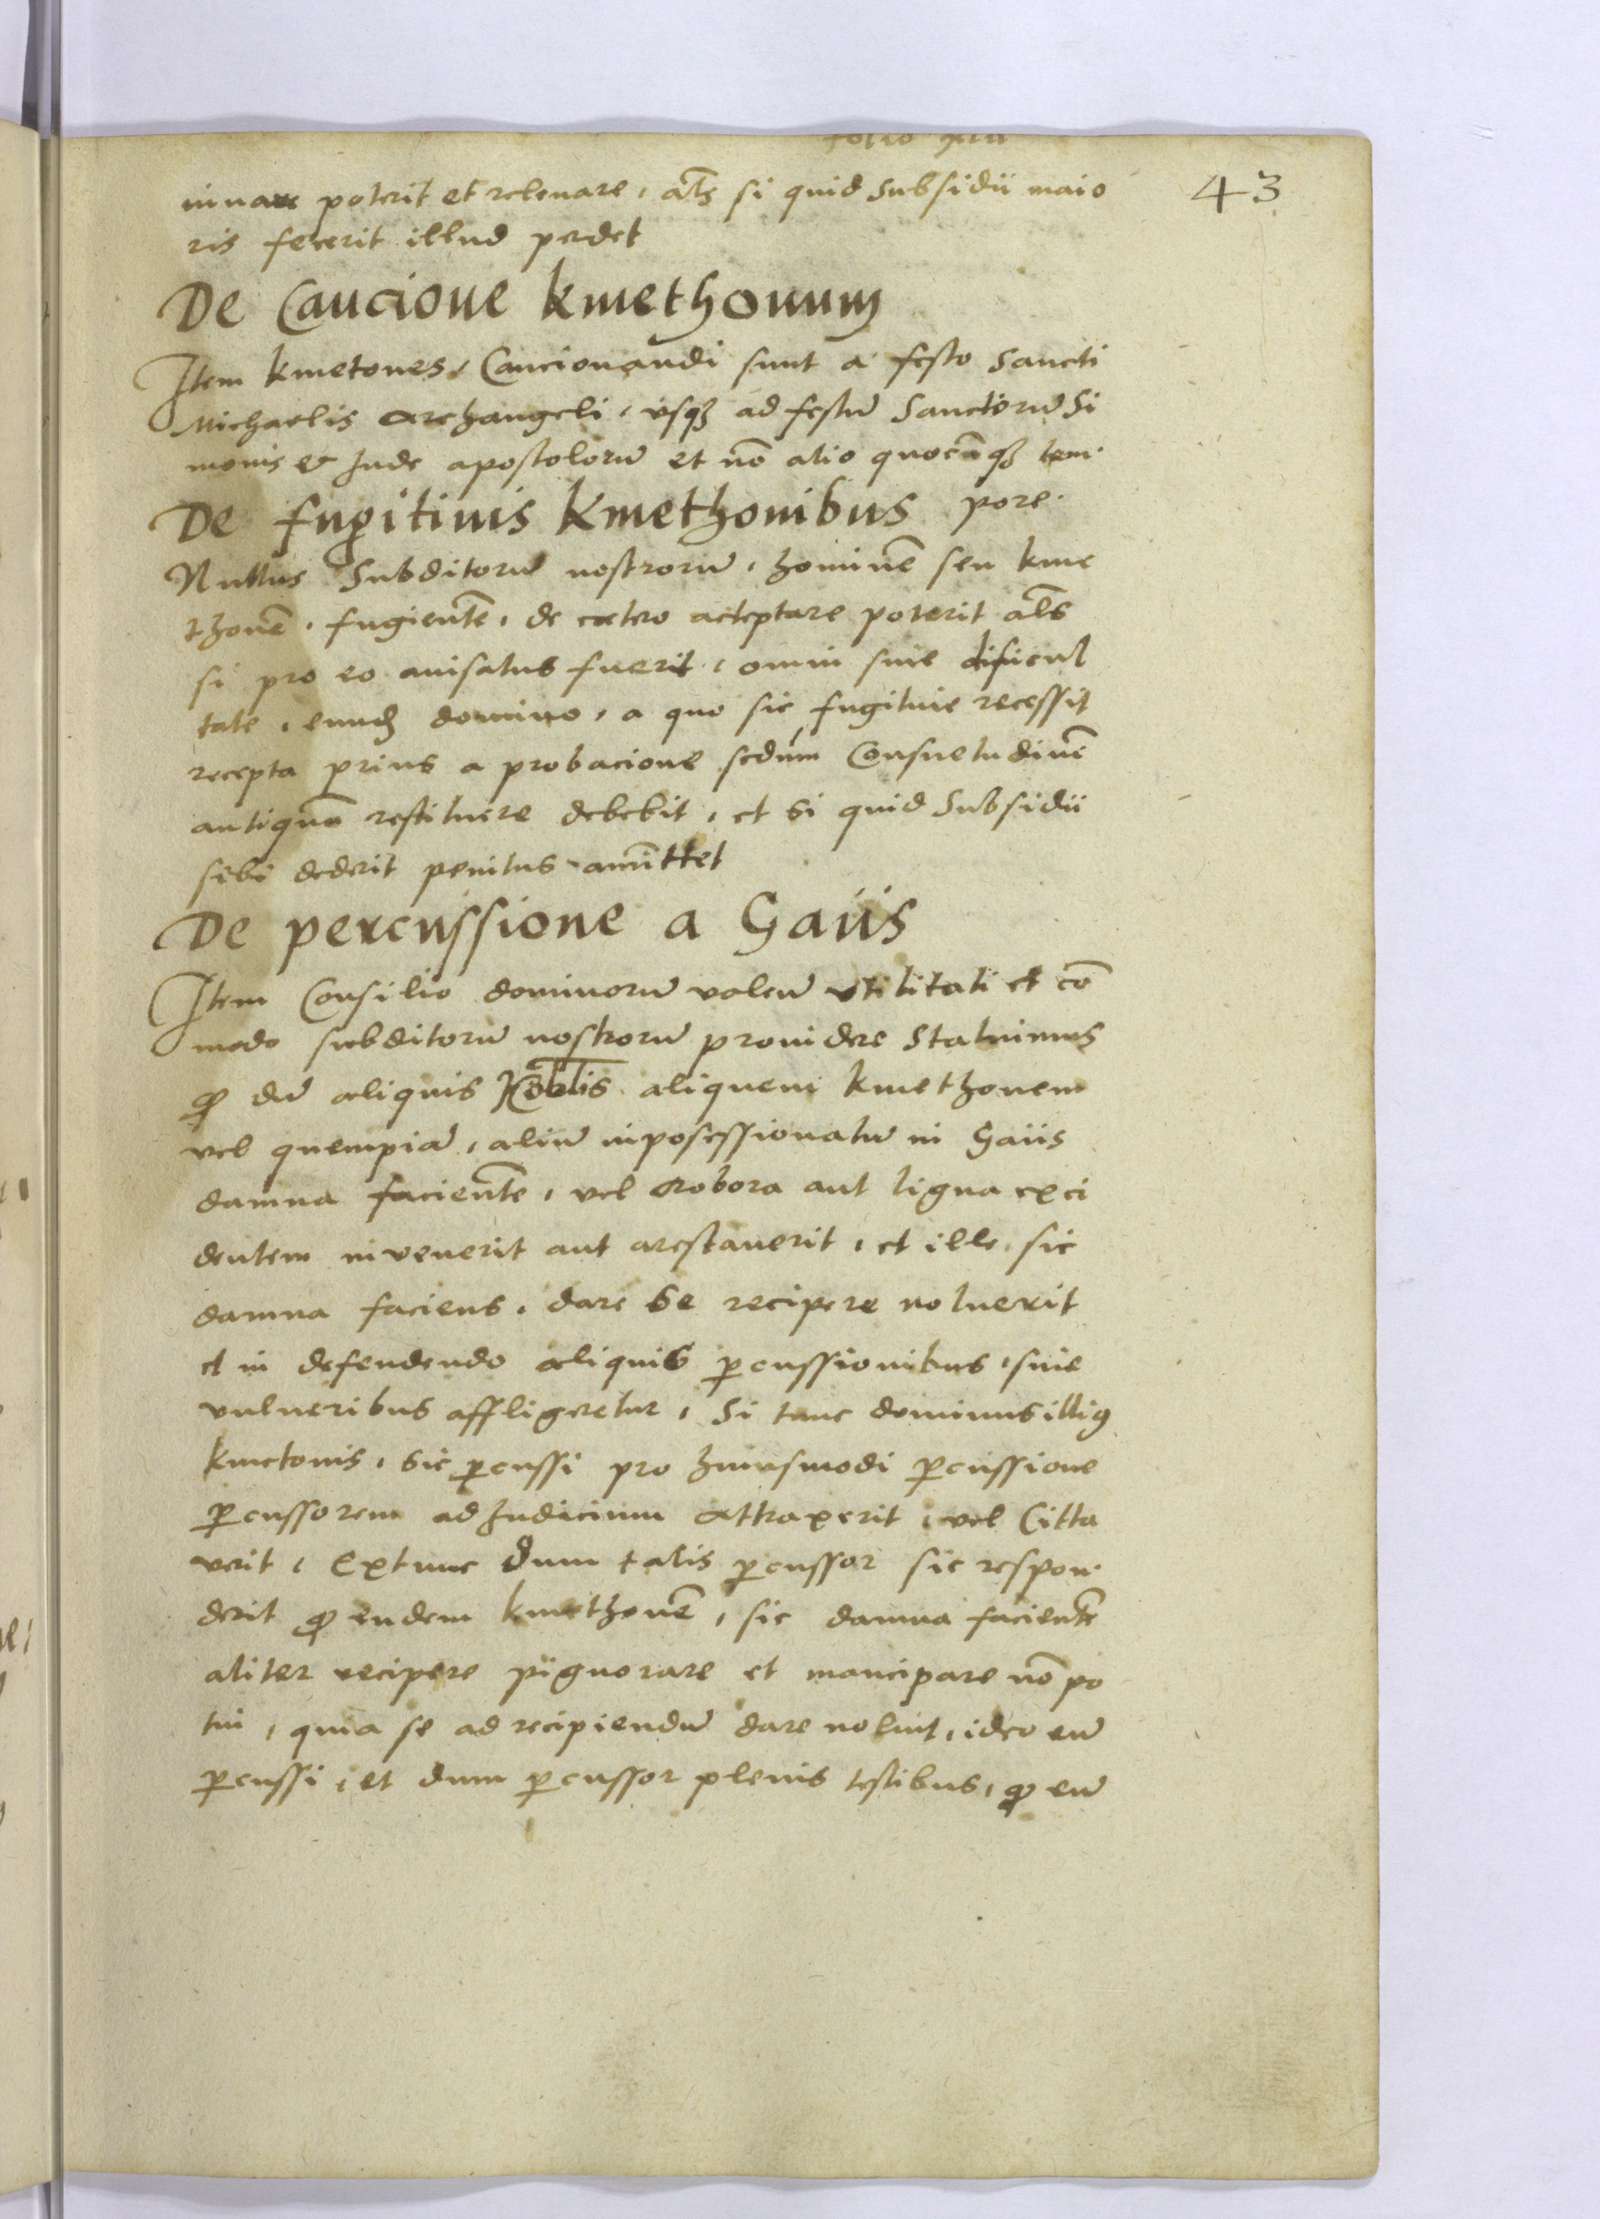 folio
43
iuvare poterit et relevare, als si quid Subsidii maio
ris fecerit illud perdet
De Caucione kmethonum
Item kmetones, Caucionandi sunt a festo Sancti
Michaelis Archangeli, usqz ad festū Sanctorū Si
monis & Jude apostolorū et nō alio quocūqz tem
pore.
De fugitiuis kmethonibus
Nullus Subditorū nostrorū, hominē seu kme
thonē, fugientē, de cetero acceptare poterit als
si pro eo auisatus fuerit, omni sine dificul
tate, eundē domino, a quo sic fugitiue recessit
recepta prius a probacione sedūm Consuetudinē
antiquā restituere debebit, et si quid Subsidii
sibi dederit penitus amittet
De percussione a Gaiis
Item Consilio dominorū volen̄ utilitati et cō
modo subditorū nostrorū prouidere Statuimus
qo dū aliquis Nobilis aliquem kmethonem
vel quempiā, aliū inposessionatū in Gaiis
damna facientē, vel Robora aut ligna exci
dentem invenerit aut arestauerit, et ille, sic
damna faciens, dare se recipere noluerit
et in defendendo aliquis pcussionibus, sine
vulneribus affligeretur, Si tunc dominus illiq
kmetonis, sic pcussi pro huiusmodi pcussione
pcussorem ad Judicium attraxerit, vel Citta
verit, Extunc dum talis pcussor sic respon
derit qo eudem kmethonē, sic damna facientē
aliter recipere pignorare et mancipare nō po
tui, quia se ad recipiendū dare noluit, ideo eū
pcussi, et dum pcussor plenis testibus, qo eū